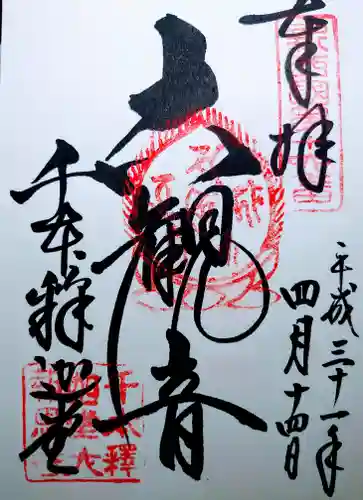 奉拝
平成三十一年
四月十四日
六観音
千本釋迦堂
千本釋
迦堂大